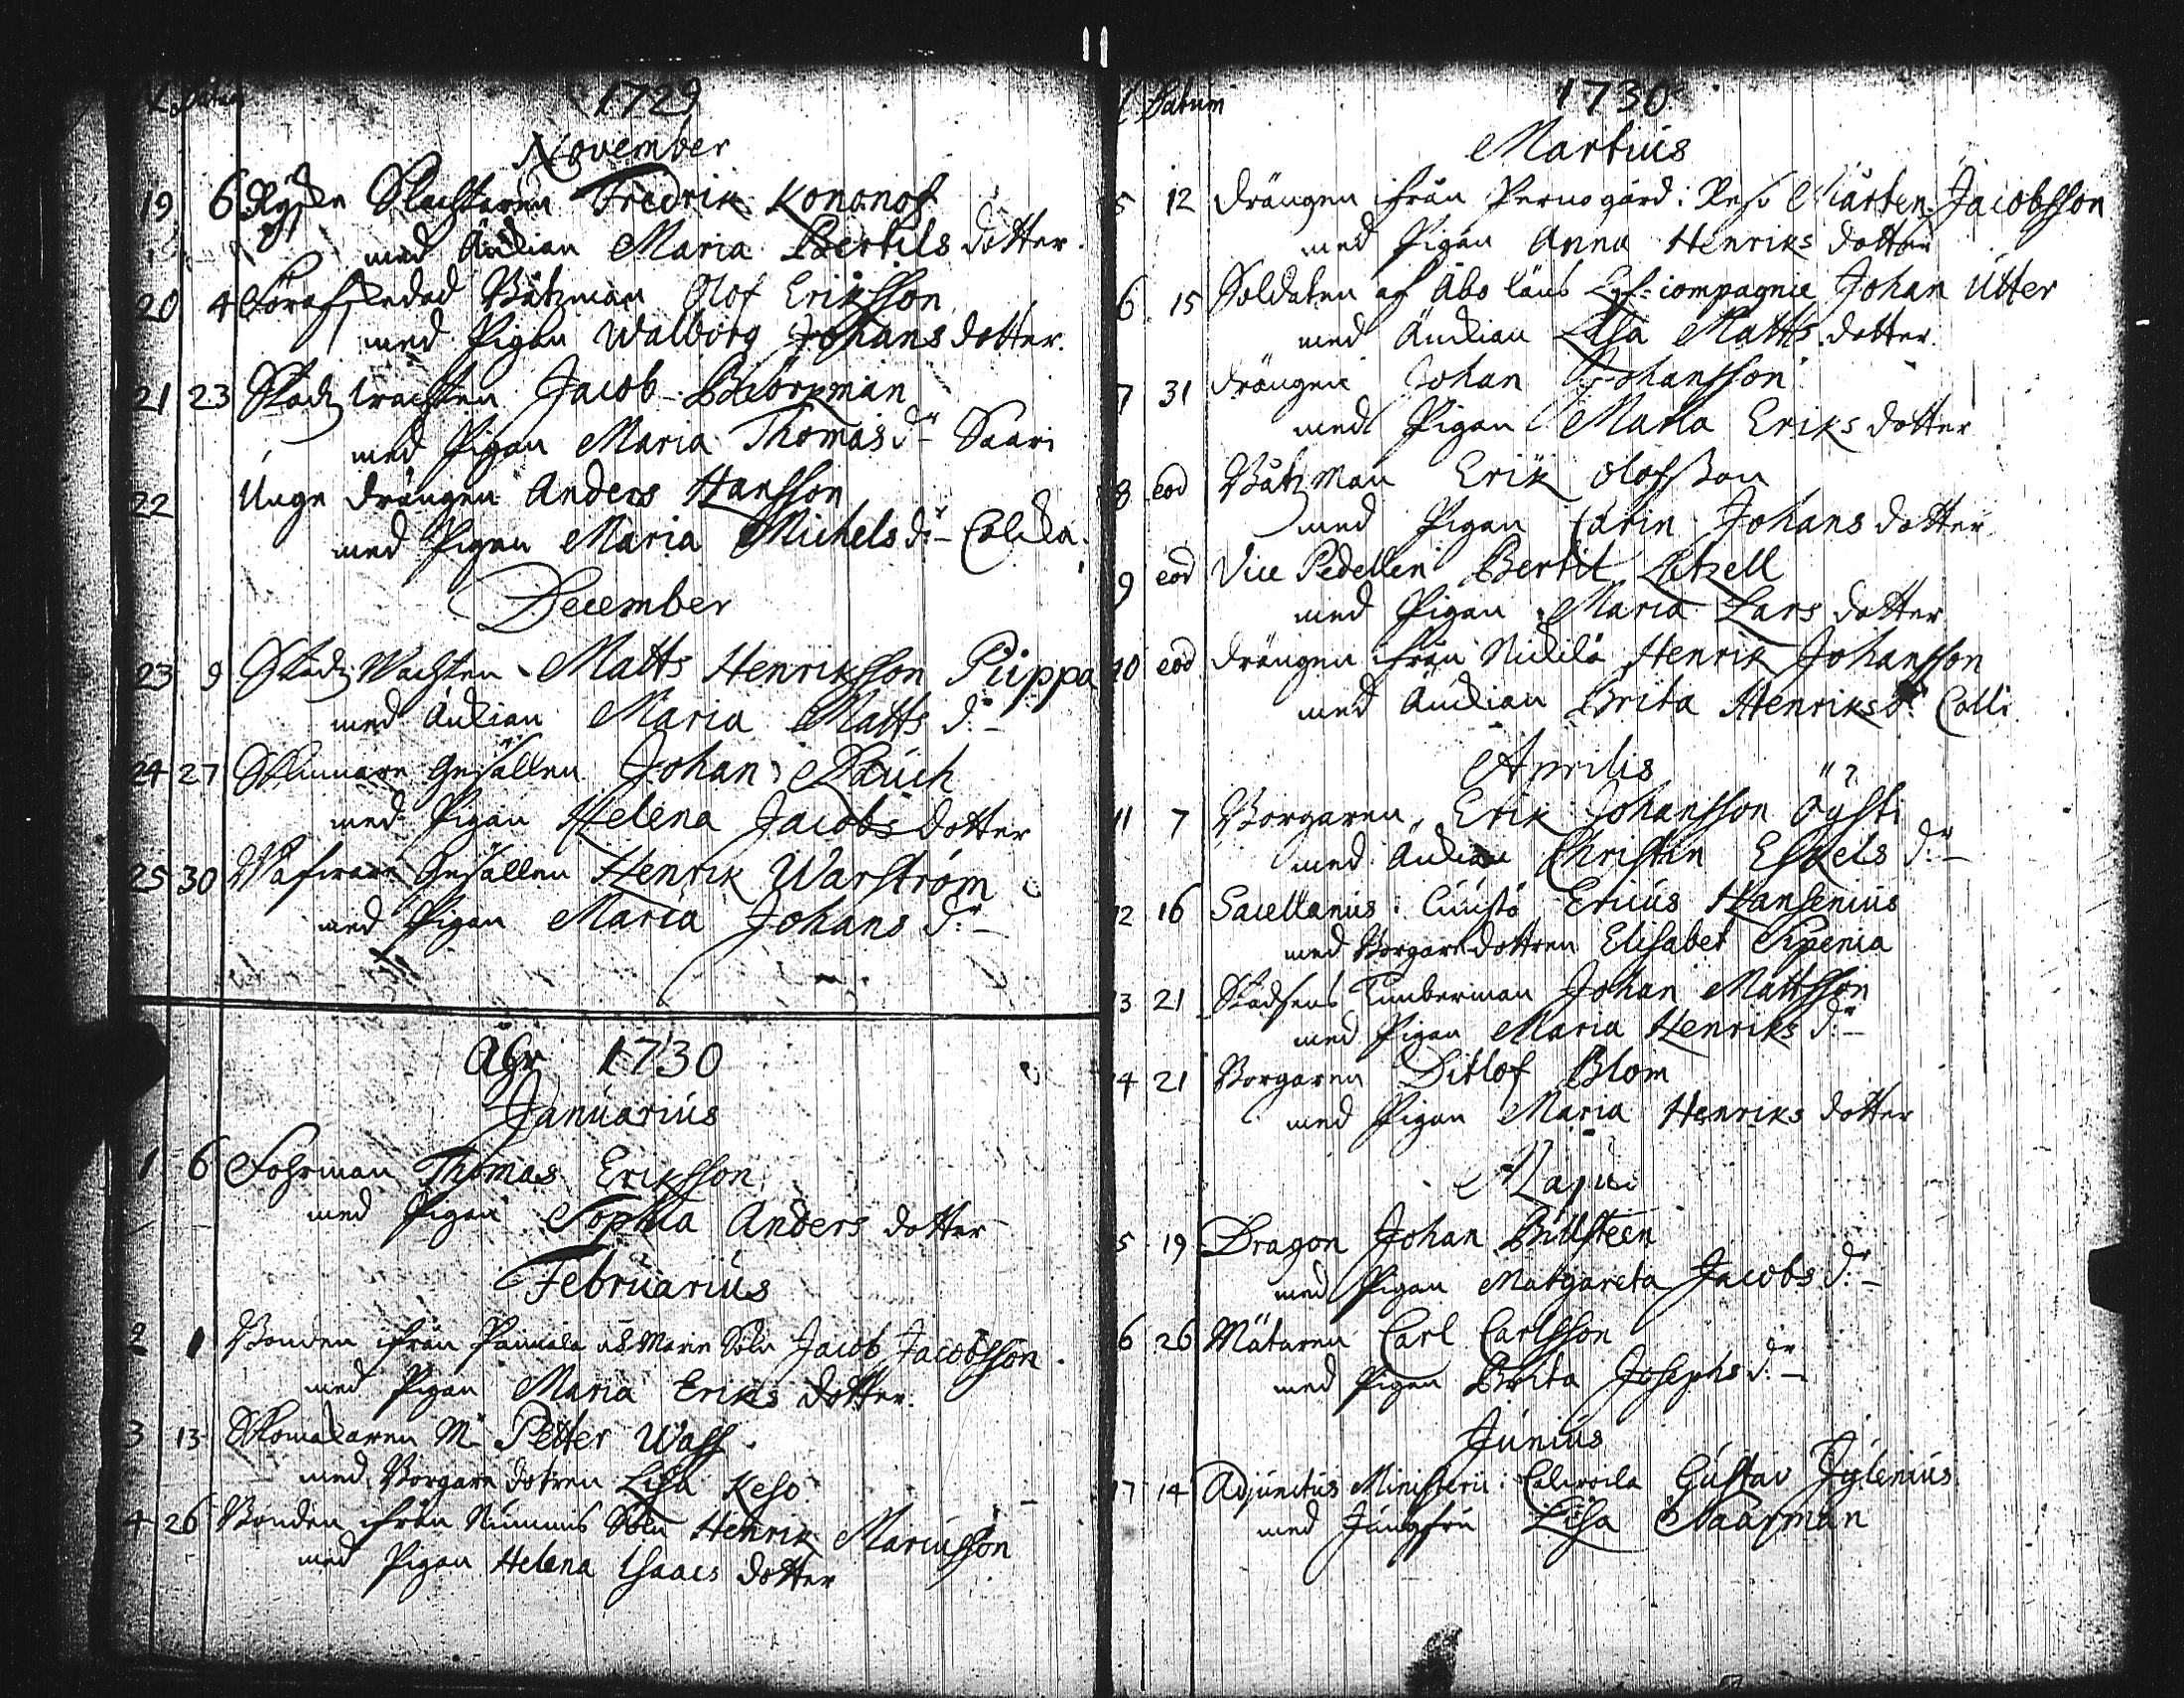 Datum
1729
November
19 6 Ryske Slachtaren Fredrik Kononof
med Änckian Maria Bertils dotter
20 4 Båtzman Olof Eriksson
med Pigan Walborg Johans dotter.
21 23 Stadz wachten Jacob Biörkman
med Pigan Maria Thomas dr Saari
22 Unge drängen Anders Hansson
med Pigan Maria Michels dr
December
23 9 Stadz Wachten Matts Henriksson Piippa
med Änckian Maria Matts dr
24 27 Skinnare Gesällen Johan
med Pigan Helena Jacobs dotter
25 30 Gesällen Henrik Warström
med Pigan Maria Johans dr
Åhr 1730
Januarius
1 6 Fohrman Thomas Eriksson
med Pigan Sophia Anders dotter
Februarius
2 1 Bonden ifrån Marie Sokn Jacob Jacobsson
med Pigan Maria Eriks dotter.
3 13 Skomakaren Mr Petter Wass
med Borgare dotren Lisa Keso
4 26 Bonden ifrån Nummis Sokn Henrik Marcusson
med Pigan Helena Isaacs dotter
Datum
1730
Martius
5 12 drängen ifrån Perno gård i Reso Mårten Jacobsson
med Pigan Anna Henriks dotter
6 15 Soldaten af Åbo läns Lif-compagnie Johan Utter
med Änckian Lisa Matts dotter.
7 31 drängen Johan Johansson
med Pigan Maria Eriks dotter
8 eod Båtzman Erik Olofsson
med Pigan Carin Johans dotter
9 eod Vice Pedellen Bertil Letzell
med Pigan Maria Lars dotter
10 eod drängen ifrån Nickilä Henrik Johansson
med Änckian Brita Henriks dr Colli
Aprilis
11 7 Borgaren Erik Johansson Öysti
med Änckian Christin Eskels dr
12 16 Sacellanus i Cuustö Ericus Hansenius
med Borgare dottren Elisabet Sipenia
13 21 Stadsens Timberman Johan Mattsson
med Pigan Maria Henriks dr
14 21 Borgaren Ditlof Blom
med Pigan Maria Henriks dotter
Majus
5 19 Dragon Johan Billsteen
med Pigan Margareta Jacobs dr
6 26 Mätaren Carl Carlsson
med Pigan Brita Josephs dr
Junius
17 14 Adjunctus Ministerii i Gustav Jylenius
med Jungfru Lisa Naarman